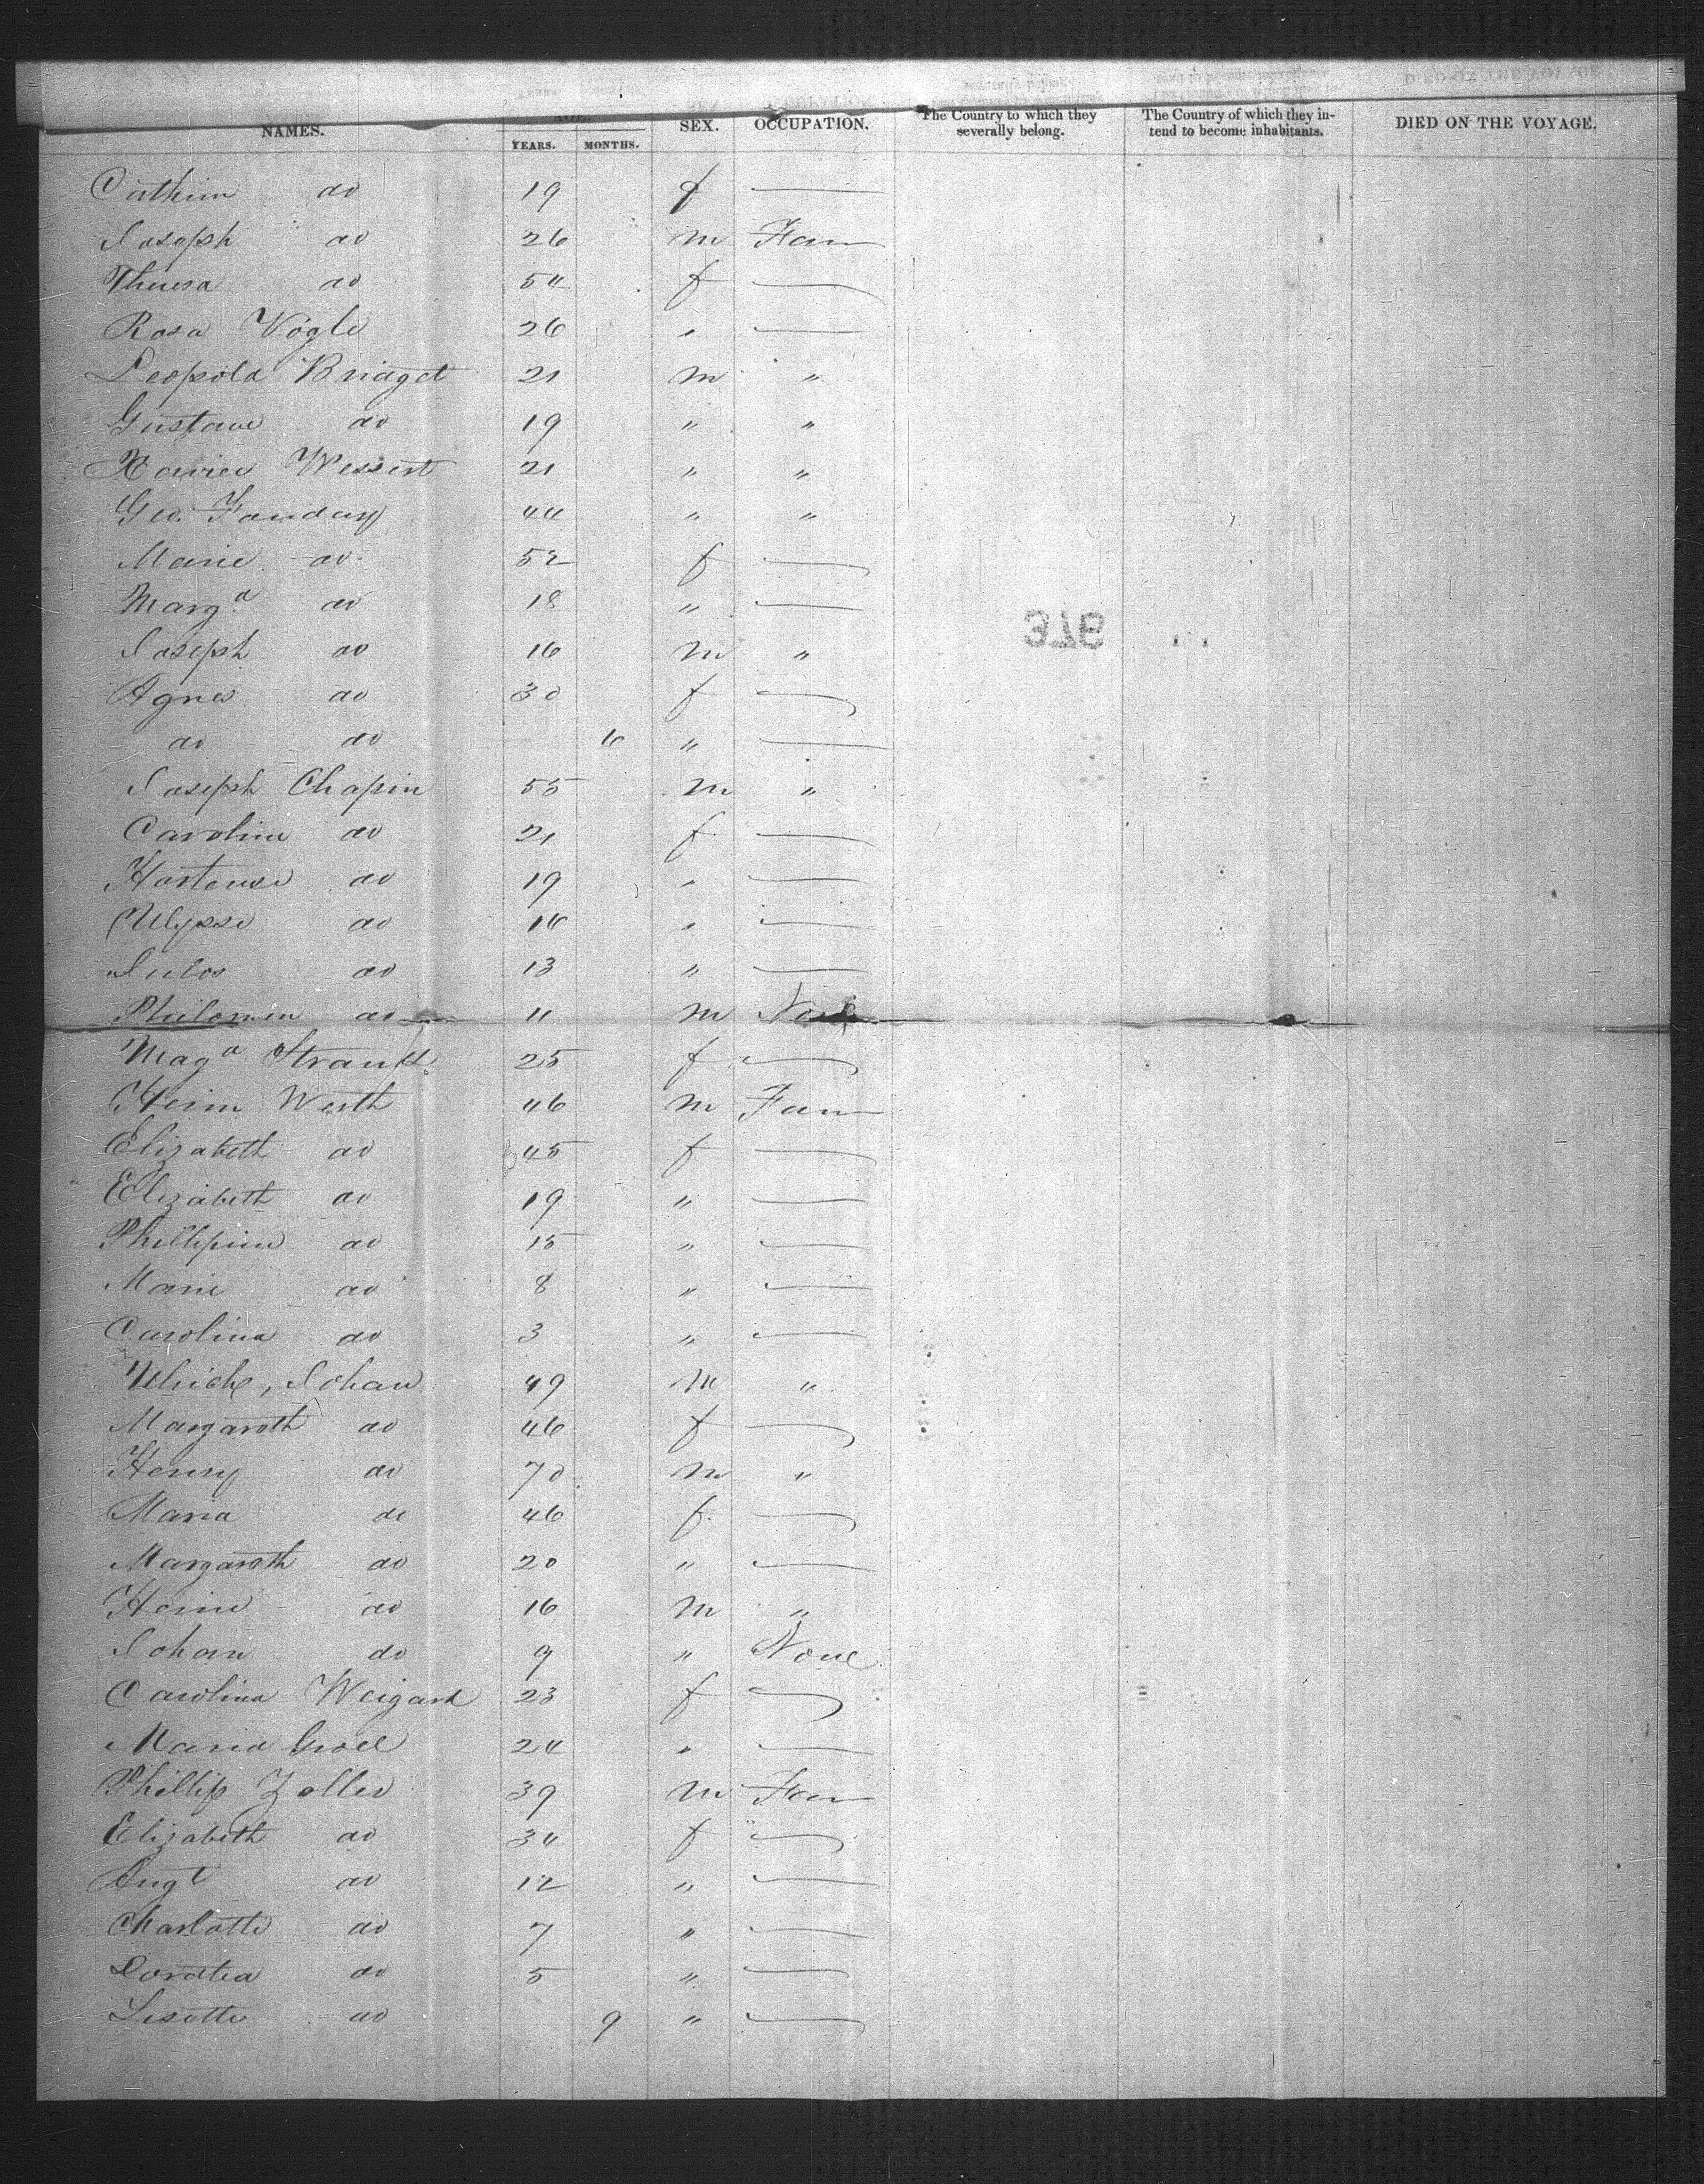 NAMES. AGE. SEX. OCCUPATION. The Country to which they severally belong. The Country of which they intend to become inhabitants. DIED ON THE VOYAGE.
YEARS. MONTHS.
Cathim do 19 f
Joseph do 26 m Farm
Theresa do 54 f
Rosa Vögle 26 "
Leopold Bridget 21 m "
Gustave do 19 " "
Xavier Wessert 21 " "
Geo. Fandary 44 " "
Marie do 52 f
Marga do 18 "
Joseph do 16 m "
Agnes do 30 f
do do 6 "
Joseph Chapin 55 m "
Carolina do 21 f
Hortense do 19 "
Ulysse do 16 "
Jules do 13 "
Philomen do 11 m None
Maga Strauss 25 f
Heim Werth 46 m Farm
Elizabeth do 45 f
Elizabeth do 19 "
Phillipine do 15 "
Marie do 8 "
Carolina do 3 "
Ulrich, Johan 49 m "
Margareth do 46 f
Henry do 70 m "
Maria do 46 f
Margareth do 20 "
Heim do 16 m "
Johan do 9 " None
Carolina Weigart 23 f
Maria Groll 24 "
Phillip Zoller 39 m Farm
Elizabeth do 34 f
Augt do 12 "
Charlotte do 7 "
Doratea do 5 "
Lisette do 9 "
376